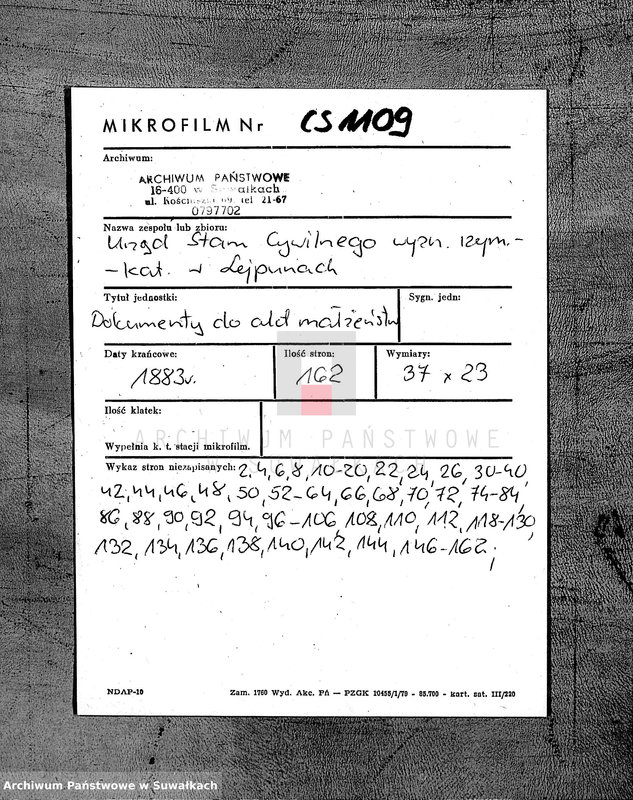 MIKROFILM Nr CS 1109
Archiwum:
ARCHIWUM PAŃSTWOWE
16-400 w Suwałkach
ul. Kościuszki 69, tel 21-67
0797702
Nazwa zespołu lub zbioru:
Urząd Stanu Cywilnego wyzn. rzym.-
-kat. w Lejpunach
Tytuł jednostki:
Sygn. jedn:
Dokumenty do akt małżeństw
Daty krańcowe:
Ilość stron:
Wymiary:
1883r.
162
37 x 23
Ilość klatek:
Wypełnia k. t. stacji mikrofilm.
ARCHIWUM PAŃSTWOWE
Wykaz stron niezapisanych: 2,4,6,8,10-20,22,24,26,30-40,
42,44,46,48,50,52-64,66,68,70,72,74-84,
86,88,90,92,94,96-106,108,110,112,118-130,
132,134,136,138,140,142,144,146-162;
NDAP-10
Zam. 1760 Wyd. Akc. Pń — PZGK 10455/I/79 - 85.700 - kart. sat. III/220
Archiwum Państwowe w Suwałkach